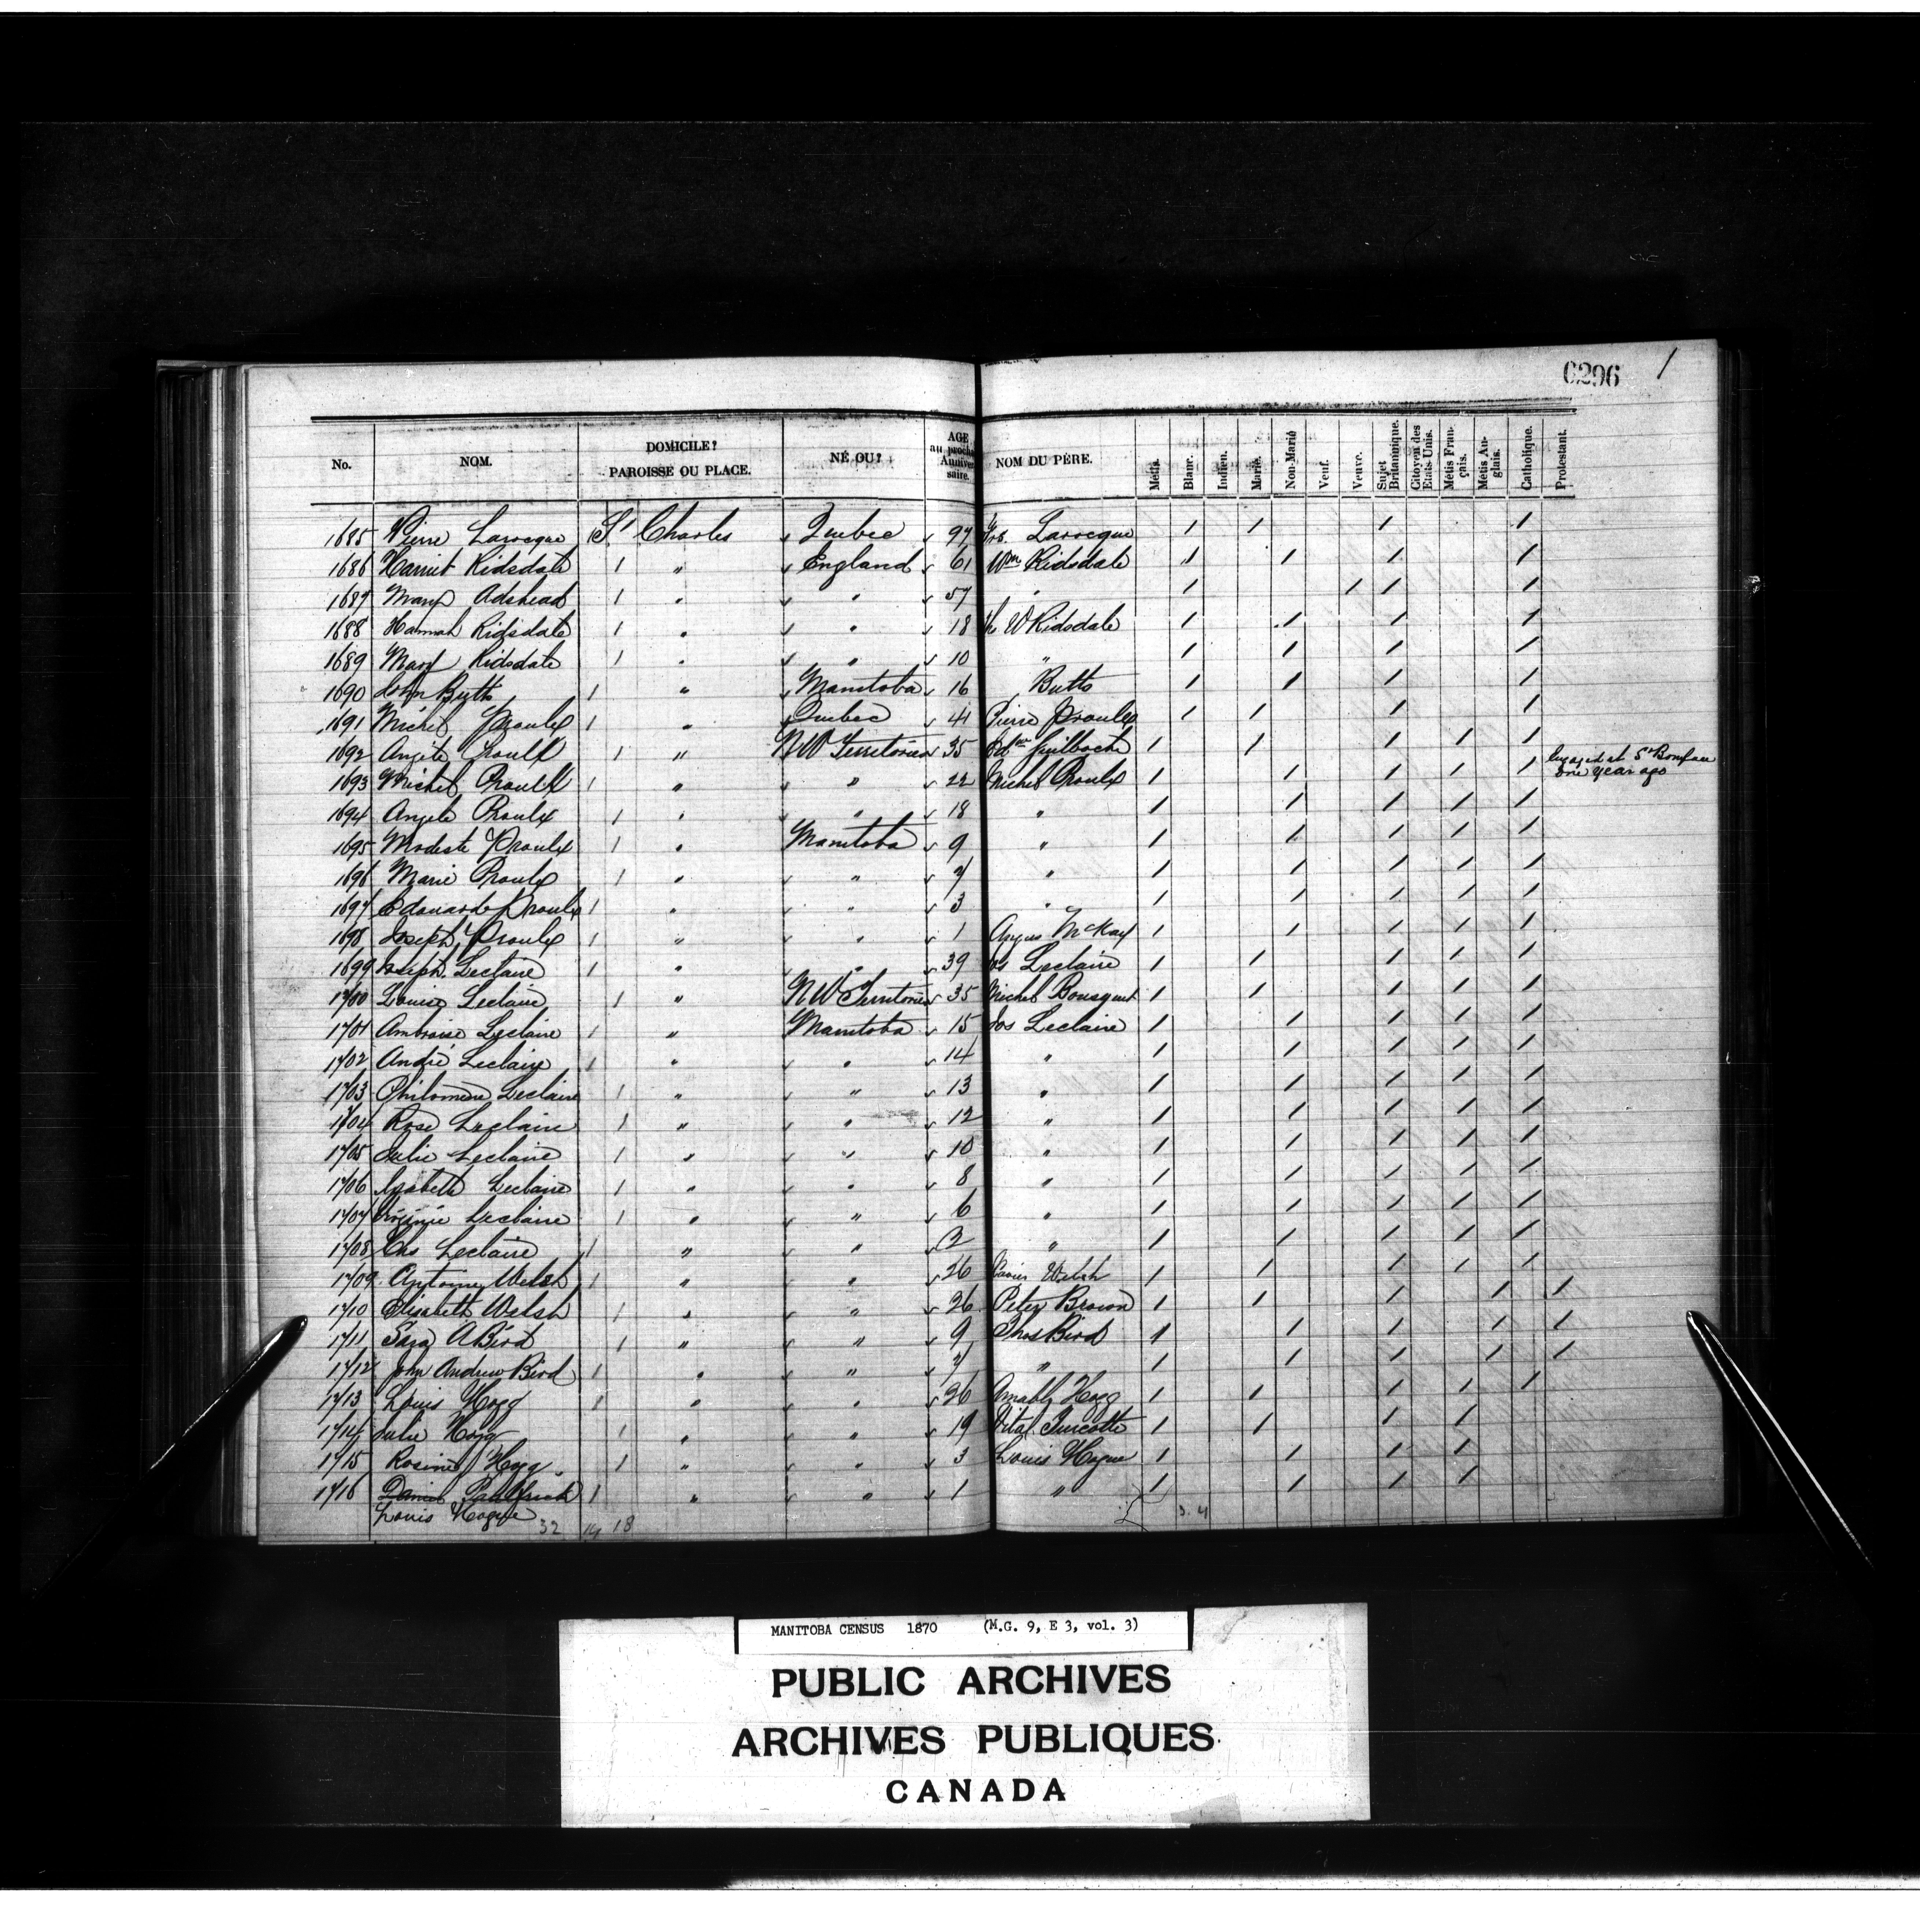 6296 /
No. NOM. DOMICILE? PAROISSE OU PLACE. NÉ OU? AGE au prochain Anniversaire. NOM DU PÈRE. Métis. Blanc. Indien. Marié. Non-Marié Veuf. Veuve. Sujet Britanique. Citoyen des Etats Unis. Métis Français. Métis Anglais. Catholique. Protestant.
1685 Pierre Larocque St Charles Quebec 97 Larocque / / / /
1686 Harriet Ridsdale 1 " England 61 Wm Ridsdale / / / /
1687 Mary Adshead 1 " " 57 " / / / /
1688 Hannah Ridsdale 1 " " 18 W Ridsdale / / / /
1689 Mary Ridsdale 1 " " 10 " / / / /
1690 John Butts 1 " Manitoba 16 Butts / / / /
1691 Michel Proulx 1 " Quebec 41 Pierre Proulx / / / /
1692 Angéle Proulx 1 " NW Territories 35 Guilboche / / / / /
1693 Michel Proulx 1 " " 22 Michel Proulx / / / / / Engaged at St Boniface one year ago
1694 Angele Proulx 1 " " 18 " / / / / /
1695 Modeste Proulx 1 " Manitoba 9 " / / / / /
1696 Marie Proulx 1 " " 7 " / / / / /
1697 Edouard Proulx 1 " " 3 " / / / / /
1698 Joseph Proulx 1 " " 1 Angus McKay / / / / /
1699 Joseph Leclaire 1 " " 39 Jos Leclaire / / / / /
1700 Louise Leclaire 1 " NW Territories 35 Michel Bousquet / / / / /
1701 Ambroise Leclaire 1 " Manitoba 15 Jos Leclaire / / / / /
1702 André Leclaire 1 " " 14 " / / / / /
1703 Philomene Leclaire 1 " " 13 " / / / / /
1704 Rose Leclaire 1 " " 12 " / / / / /
1705 Julie Leclaire 1 " " 10 " / / / / /
1706 Isabelle Leclaire 1 " " 8 " / / / / /
1707 Virginie Leclaire 1 " " 6 " / / / / /
1708 Chs Leclaire 1 " " 2 " / / / / /
1709 Antoine Welsh 1 " " 26 Xavier Welsh / / / / /
1710 Elizabeth Welsh 1 " " 26 Peter Brown / / / / /
1711 Sara A Bird 1 " " 9 Thos Bird / / / / /
1712 John Andrew Bird 1 " " 7 " / / / / /
1713 Louis Hogg 1 " " 26 Amable Hogg / / / / /
1714 Julie Hogg 1 " " 19 Vital Turcotte / / / /
1715 Rosine Hogg 1 " " 3 Louis Hogue / / / /
1716 Daniel 1 " " 1 " / / / /
Louis Hogue 32 14 18 3. 4
MANITOBA CENSUS 1870 (M.G. 9, E 3, vol. 3)
PUBLIC ARCHIVES
ARCHIVES PUBLIQUES
CANADA